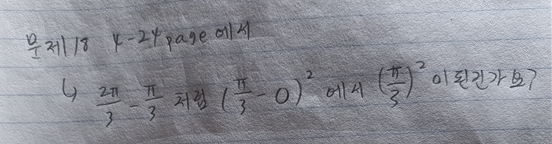 문제18 4-24page에서
↳ 2π/3 - π/3 처럼 (π/3 - 0)² 에서 (π/3)² 이 된건가요?